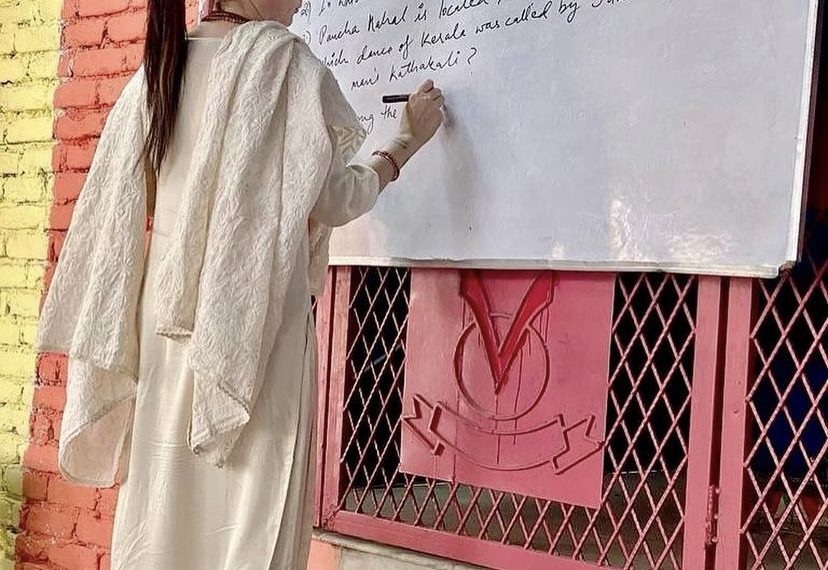 2) In
) Pancha Mahal is located
hich dance of Kerala was called by
men's Kathakali?
ng the